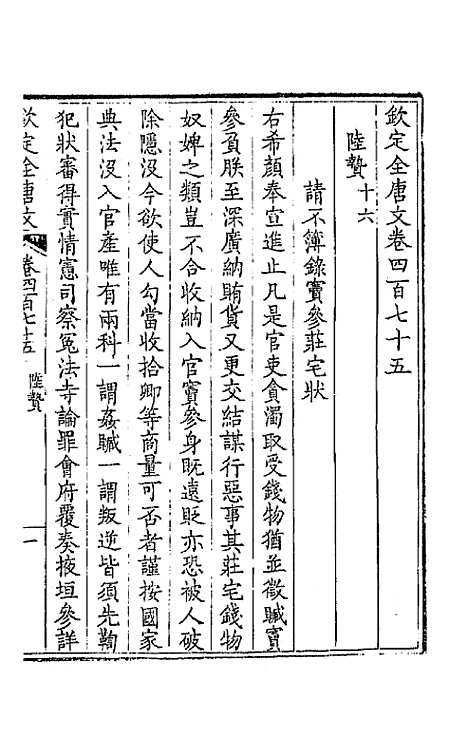 欽定全唐文卷四百七十五
陸贄十六
請不簿錄竇參莊宅狀
右希顏奉宣進止凡是官吏貪濁取受錢物猶並徵贓竇
參負朕至深廣納賄貨又更交結謀行惡事其莊宅錢物
奴婢之類豈不合收納入官竇參身旣遠貶亦恐被人破
除隱沒今欲使人勾當收拾卿等商量可否者謹按國家
典法沒入官產唯有兩科一謂姦贓一謂叛逆皆須先鞫
犯狀審得實情憲司察冤法寺論罪會府覆奏掖垣參詳
欽定全唐文 卷四百七十五 陸贄 一